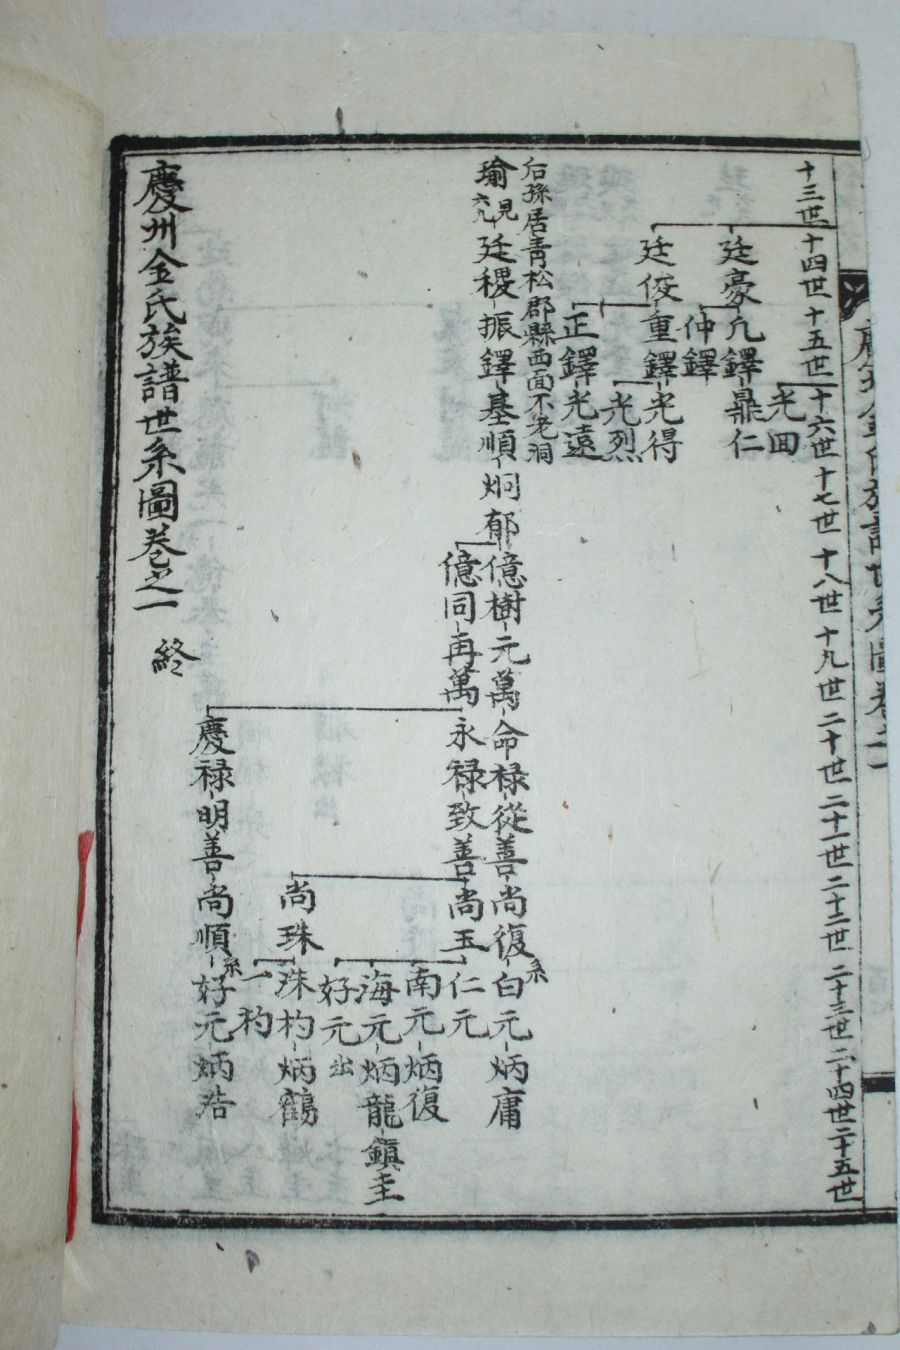 十三世 十四世 十五世 十六世 十七世 十八世 十九世 二十世 二十一世 二十二世 二十三世 二十四世 二十五世
光回
廷豪 九鐸 鼎仁
仲鐸
廷俊 重鐸 光得
光烈
正鐸 光遠
后孫居青松郡縣西面不老洞
瑜 見六九 廷稷 振鐸 基順 炯郁 億樹 元萬 命祿 從善 尚復 系 白元 炳庸
億同 再萬 永祿 致善 尚玉 仁元
南元 炳復
海元 炳龍 鎭圭
好元 出
尚珠 洙杓 炳鶴
一杓
慶祿 明善 尚順 系 好元 炳浩
慶州金氏族譜世系圖卷之一 終